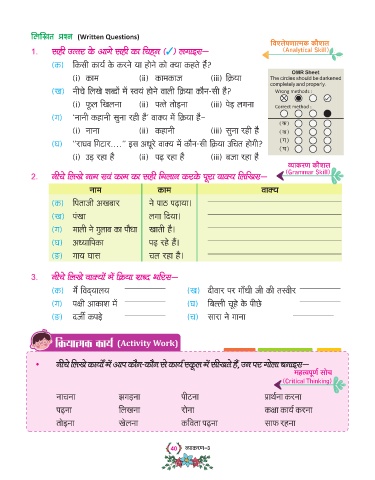 लिखित प्रश्न (Written Questions)
विश्लेषणात्मक कौशल
(Analytical Skill)
1. सही उत्तर के आगे सही का चिह्न (✓) लगाइए—
(क) किसी कार्य के करने या होने को क्या कहते हैं?
(i) काम (ii) कामकाज (iii) क्रिया
(ख) नीचे लिखे शब्दों में स्वयं होने वाली क्रिया कौन-सी है?
(i) फूल खिलना (ii) पत्ते तोड़ना (iii) पेड़ लगना
(ग) 'नानी कहानी सुना रही हैं' वाक्य में क्रिया है–
(i) नाना (ii) कहानी (iii) सुना रही है
(घ) "राघव गिटार...." इस अधूरे वाक्य में कौन-सी क्रिया उचित होगी?
(i) उड़ रहा है (ii) पढ़ रहा है (iii) बजा रहा है
OMR Sheet
The circles should be darkened
completely and properly.
Wrong methods :
Correct method :
(क)
(ख)
(ग)
(घ)
व्याकरण कौशल
(Grammar Skill)
2. नीचे लिखे नाम एवं काम का सही मिलान करके पूरा वाक्य लिखिए—
नाम काम वाक्य
(क) पिताजी अखबार ने पाठ पढ़ाया।
(ख) पंखा लगा दिया।
(ग) माली ने गुलाब का पौधा खाती है।
(घ) अध्यापिका पढ़ रहे हैं।
(ङ) गाय घास चल रहा है।
3. नीचे लिखे वाक्यों में क्रिया शब्द भरिए—
(क) मैं विद्यालय (ख) दीवार पर गाँधी जी की तस्वीर
(ग) पक्षी आकाश में (घ) बिल्ली चूहे के पीछे
(ङ) दर्जी कपड़े (च) सारा ने गाना
क्रियात्मक कार्य (Activity Work)
• नीचे लिखे कार्यों में आप कौन-कौन से कार्य स्कूल में सीखते हैं, उन पर गोला बनाइए—
महत्वपूर्ण सोच
(Critical Thinking)
नाचना झगड़ना पीटना प्रार्थना करना
पढ़ना लिखना रोना कक्षा कार्य करना
तोड़ना खेलना कविता पढ़ना साफ रहना
40 व्याकरण-3